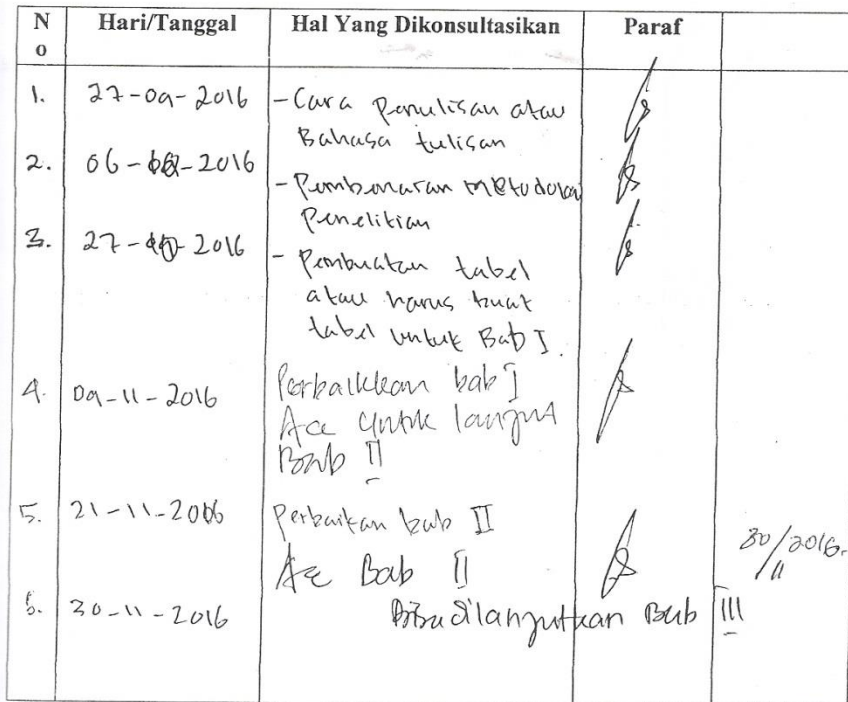 No Hari/Tanggal Hal Yang Dikonsultasikan Paraf
1. 27-09-2016 - Cara Penulisan atau
Bahasa tulisan
2. 06- -2016
- Pembenaran metodologi
Penelitian
3. 27- -2016
- Pembuatan tabel
atau harus buat
tabel untuk Bab I.
4. 09-11-2016 Perbaikkan bab I
Acc untuk lanjut
Bab II
5. 21-11-2016 Perbaikan bab II
Acc Bab II 30/11 2016.
6. 30-11-2016 Bisa dilanjutkan Bab III